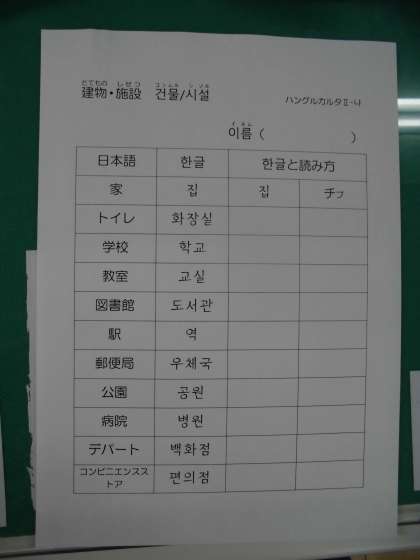 たてもの しせつ コンムル シソル
建物・施設 건물/시설
ハングルカルタⅡ-나
イルム
이름 ( )
日本語 한글 한글と読み方
家 집 집 チプ
トイレ 화장실
学校 학교
教室 교실
図書館 도서관
駅 역
郵便局 우체국
公園 공원
病院 병원
デパート 백화점
コンビニエンスス
トア 편의점